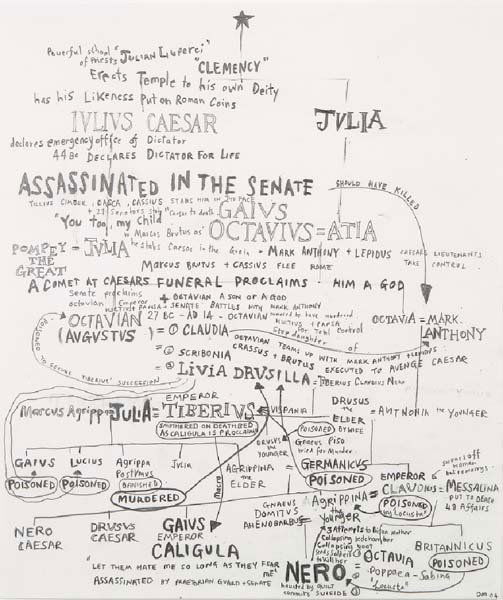 Powerful school "JULIAN Luperci"
of Priests
"CLEMENCY"
Erects Temple to his own Deity
has his Likeness Put on Roman Coins
IVLIVS CAESAR
JVLIA
declares emergency office of Dictator
44 BC DECLARES DICTATOR FOR LIFE
ASSASSINATED IN THE SENATE
SHOULD HAVE KILLED
CASCA, CASSIUS
GAIUS
"You too, my Child"
OCTAVIUS = ATIA
POMPEY = JULIA
THE
GREAT
he stabs Caesar in the Groin
MARK ANTHONY + LEPIDUS
CAESARS LIEUTENANTS
TAKE CONTROL
MARCUS BRUTUS + CASSIUS FLEE ROME
A COMET AT CAESARS FUNERAL PROCLAIMS - HIM A GOD
Senate proclaims
octavian Emperor
OCTAVIAN A SON OF A GOD
SENATE BATTLES WITH MARK ANTHONY
OCTAVIAN 27 BC - AD 14 - OCTAVIAN
for Total Control
OCTAVIA = MARK
ANTHONY
(AUGUSTUS)
= ① CLAUDIA
Step daughter of
OCTAVIAN TEAMS UP WITH MARK ANTHONY + LEPIDUS
CRASSUS + BRUTUS EXECUTED TO AVENGE CAESAR
= ② SCRIBONIA
= ③ LIVIA DRUSILLA = TIBERIUS CLAUDIUS NERO
POISONED TO SECURE TIBERIUS' SUCCESSION
EMPEROR
Marcus Agrippa = JULIA = TIBERIUS = VISPANIA
SMOTHERED ON DEATHBED
AS CALIGULA IS PROCLAIMED
DRUSUS
the
ELDER
= ANTHONIA the YOUNGER
POISONED BY WIFE
DRUSUS
the
YOUNGER
Gnaeus Piso
tried for Murder
GAIUS
POISONED
LUCIUS
POISONED
Agrippa
Postumus
BANISHED
MURDERED
Julia
AGRIPPINA
the
ELDER
= GERMANICUS
POISONED
EMPEROR
CLAUDIUS =
POISONED
by Locusta
MESSALINA
PUT TO DEATH
48 AFFAIRS
GNAEUS
DOMITUS
AHENOBARBUS
AGRIPPINA
the
YOUNGER
3 Attempts
Collapsing bedchamber
Collapsing boat
to kill her
NERO
CAESAR
DRUSUS
CAESAR
GAIUS
EMPEROR
CALIGULA
"LET THEM HATE ME SO LONG AS THEY FEAR ME"
ASSASSINATED BY PRAETORIAN GUARD + SENATE
NERO
haunted by GUILT
commits SUICIDE
= ① OCTAVIA
= ② Poppaea - Sabina
BRITANNICUS
POISONED
"Locusta"